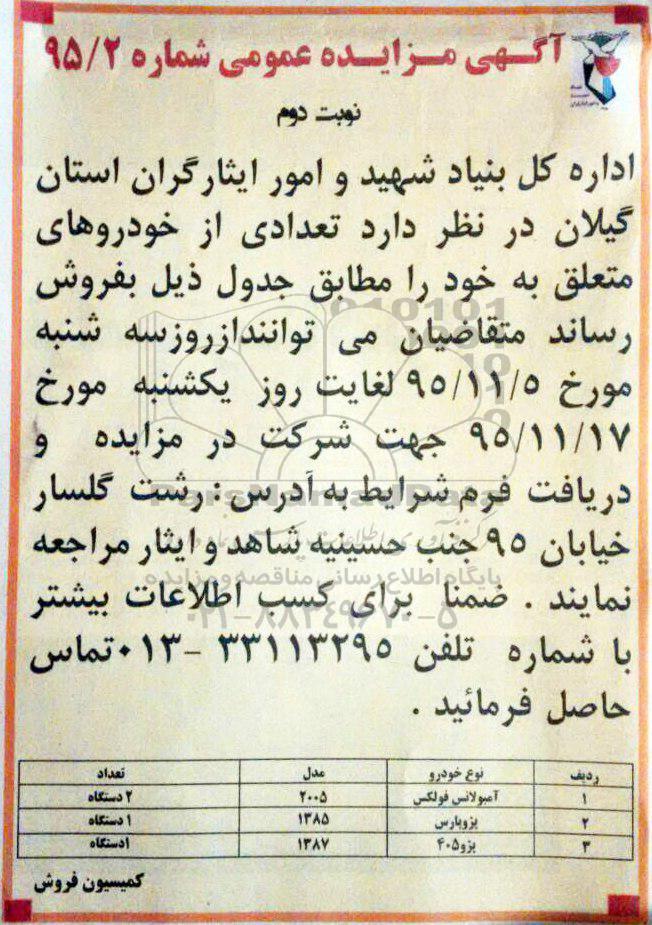 آگهی مزایده عمومی شماره ۹۵/۲
نوبت دوم
اداره کل بنیاد شهید و امور ایثارگران استان
گیلان در نظر دارد تعدادی از خودروهای
متعلق به خود را مطابق جدول ذیل بفروش
رساند متقاضیان می توانندازروزسه شنبه
مورخ ۹۵/۱۱/۵ لغایت روز یکشنبه مورخ
۹۵/۱۱/۱۷ جهت شرکت در مزایده و
دریافت فرم شرایط به آدرس : رشت گلسار
خیابان ۹۵ جنب حسینیه شاهد و ایثار مراجعه
نمایند . ضمنا برای کسب اطلاعات بیشتر
با شماره تلفن ۳۳۱۱۳۲۹۵ -۰۱۳ تماس
حاصل فرمائید .
ردیف نوع خودرو مدل تعداد
۱ آمبولانس فولکس ۲۰۰۵ ۲ دستگاه
۲ پژوپارس ۱۳۸۵ ۱ دستگاه
۳ پژو۴۰۵ ۱۳۸۷ ۱دستگاه
کمیسیون فروش
ParsNamadData
پایگاه اطلاع رسانی مناقصه و مزایده
۰۲۱-۸۸۳۴۹۶۷۰-۵